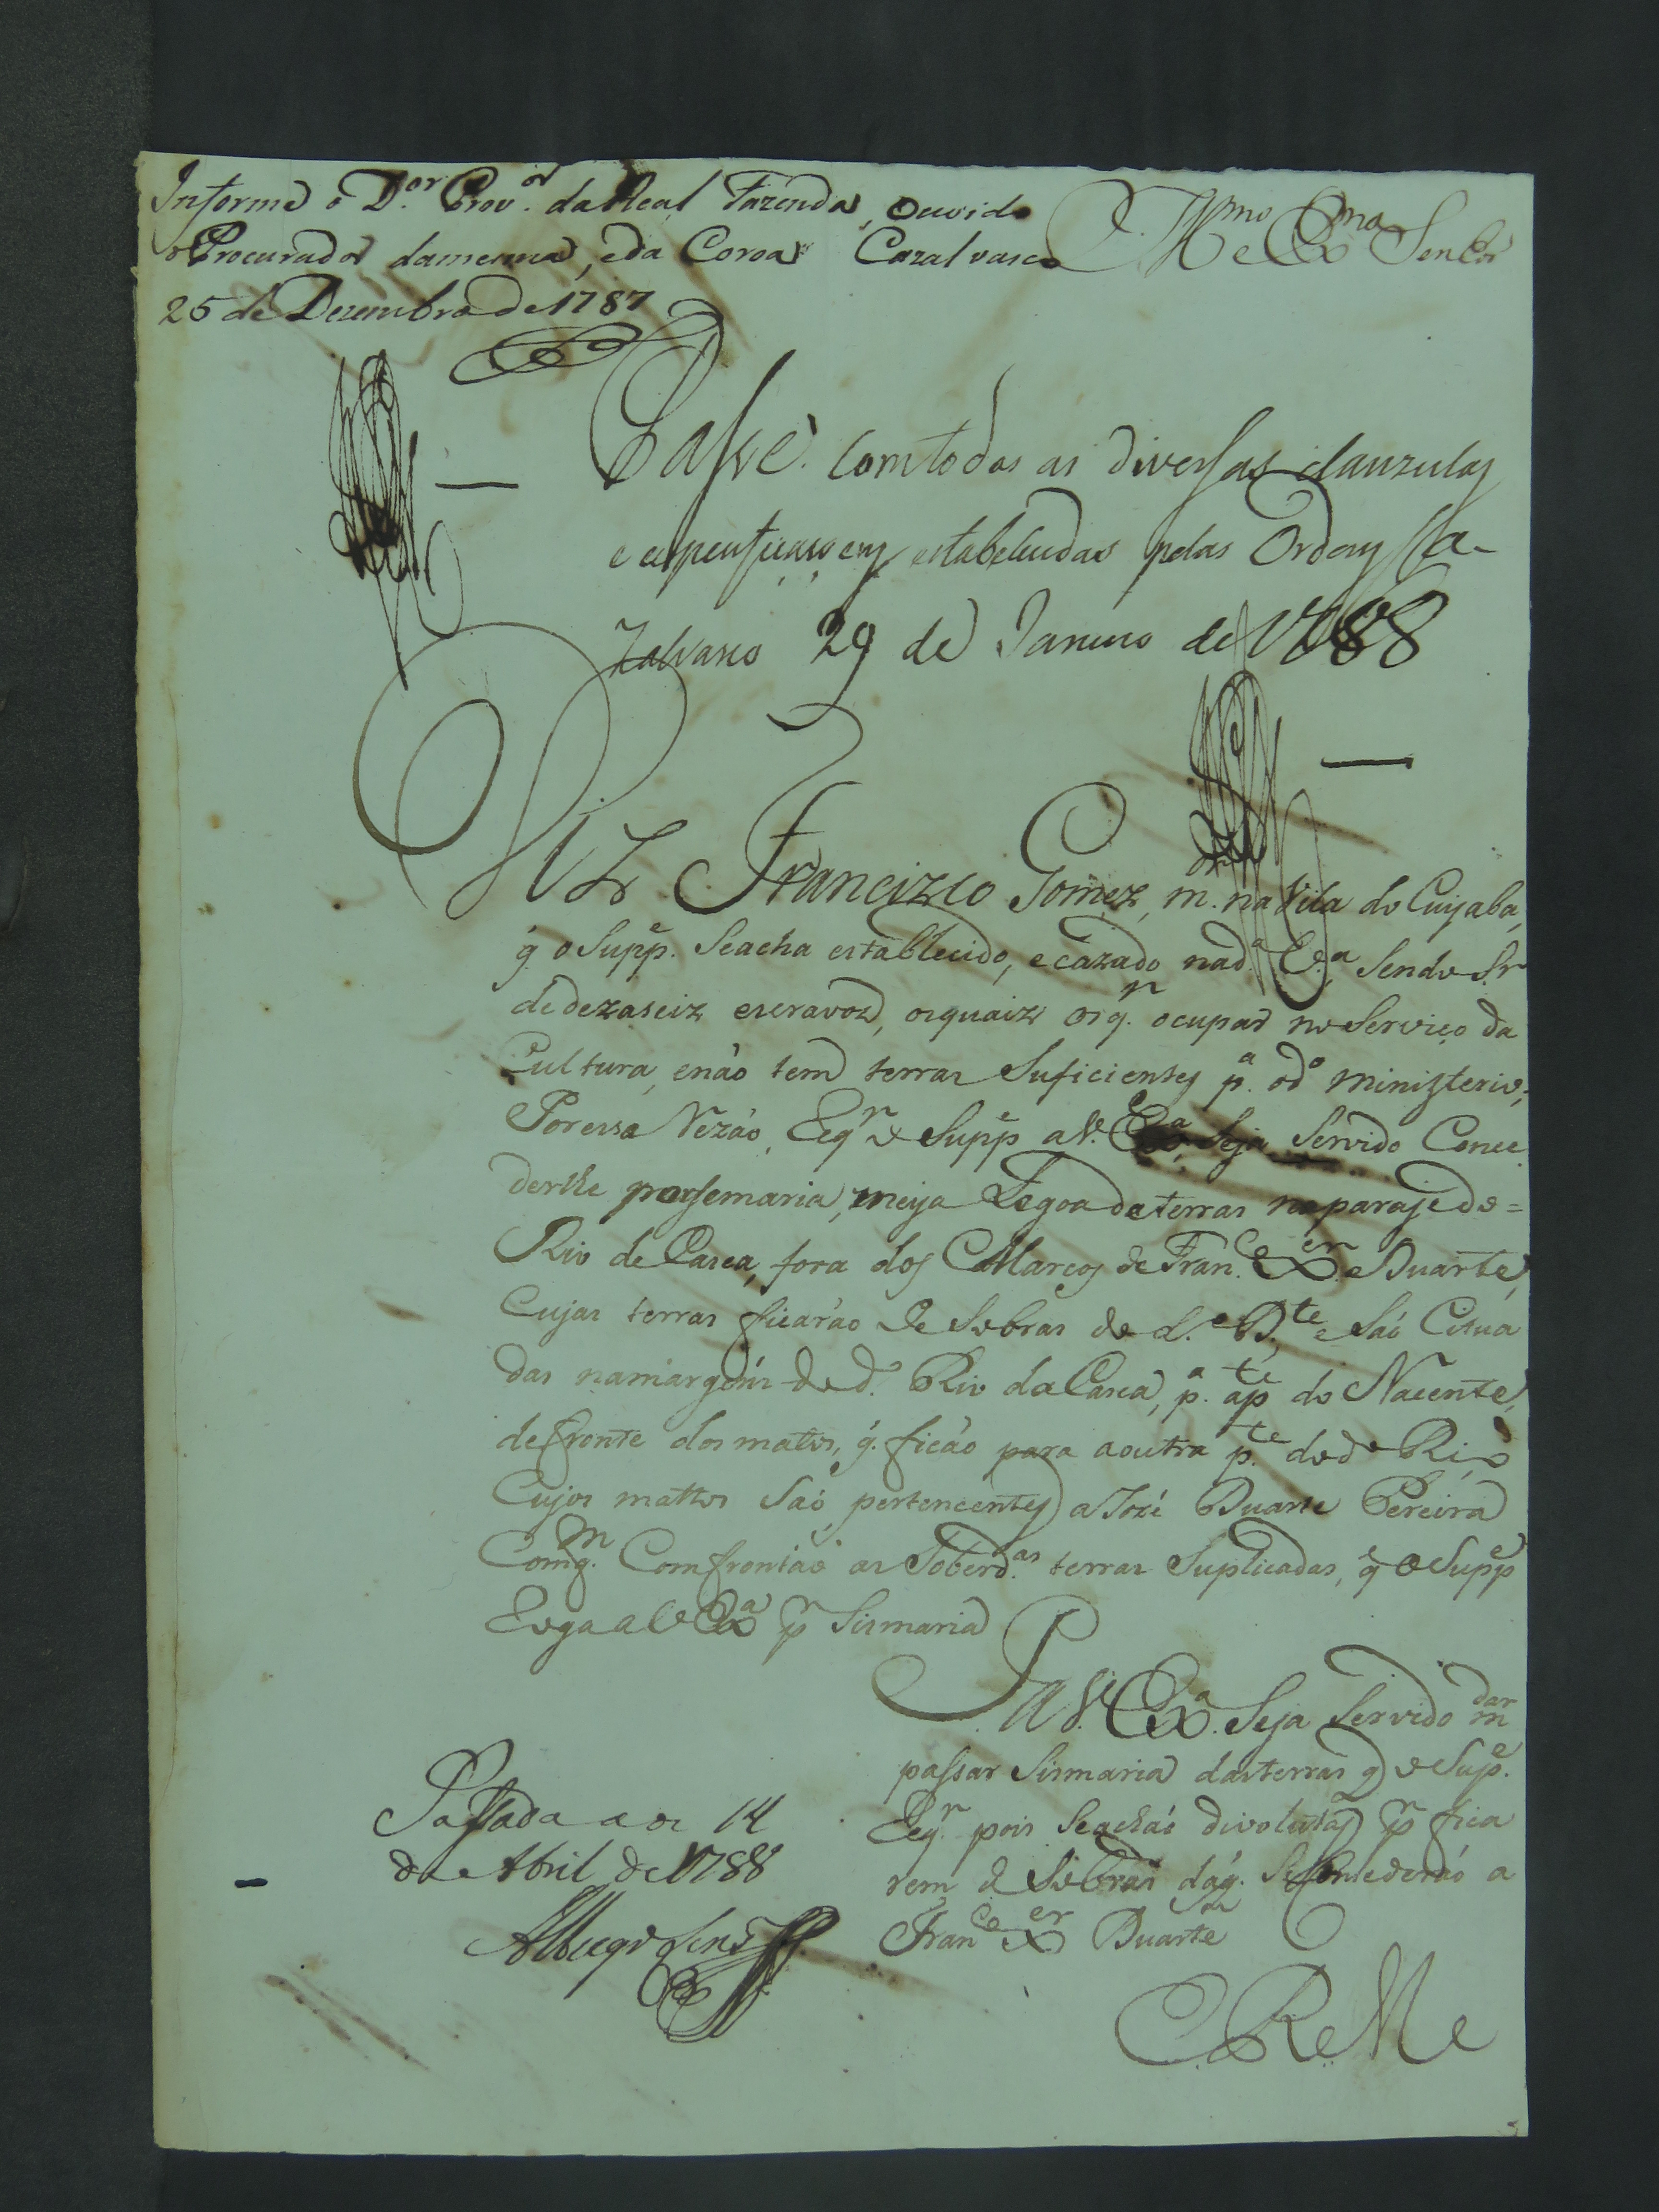 Informe o D.or Prov.or da Real Fazenda, ouvido
o Procurador damesma, eda Coroa Cazalvasco
25 de Dezembro de 1787
Ill.mo e Ex.mo Senhor
Passe. Com todas as diversas clauzulas
e estabelecidas pelas Ordens Ca-
zalvasco 29 de Janeiro de 1788
Diz Francizco Gomez, m.or na Vila do Cuyaba,
q̃ o Supp.e Seacha establecido, e cazado nad.a E.a Sendo S.r
de dezaseiz escravoz, osquaiz os q.r ocupar no Serviço da
Cultura, enáo tem terras Suficientes p.a od.o minizterio;
Poressa Rezáo, Req.r o Supp.e a V. Ex.a Seja Servido Conce
derlhe porsemaria, meya Legoa de terras no paraje do=
Rio da Casca, fora dos Marcos de Fran.co X.er Duarte,
Cujas terras ficaráo de Sobras do d.o D.te e Saó Citua
das namargém do d.o Rio da Casca, p.a ap.te do Nacente,
defronte dos matos, q̃. ficáo para aoutra p.te do d.o Rio
Cujos mattos Saó pertencentes a Jozé Duarte Pereira
Comq.m Comfrontáo as Soberd.as terras Suplicadas, q̃ o Supp.e
Roga a V. Ex.a p.r Sismaria
P. a V. Ex.a Seja Servido m.dar
passar Sismaria dasterras q̃ o Sup.e
Req.r pois Seacháó divolutas p.r fica
rem de Sobras dáq. Se Concederaó a
Fran.co X.er Duarte
Passada aos 14
de Abril de 1788
E R e M.e